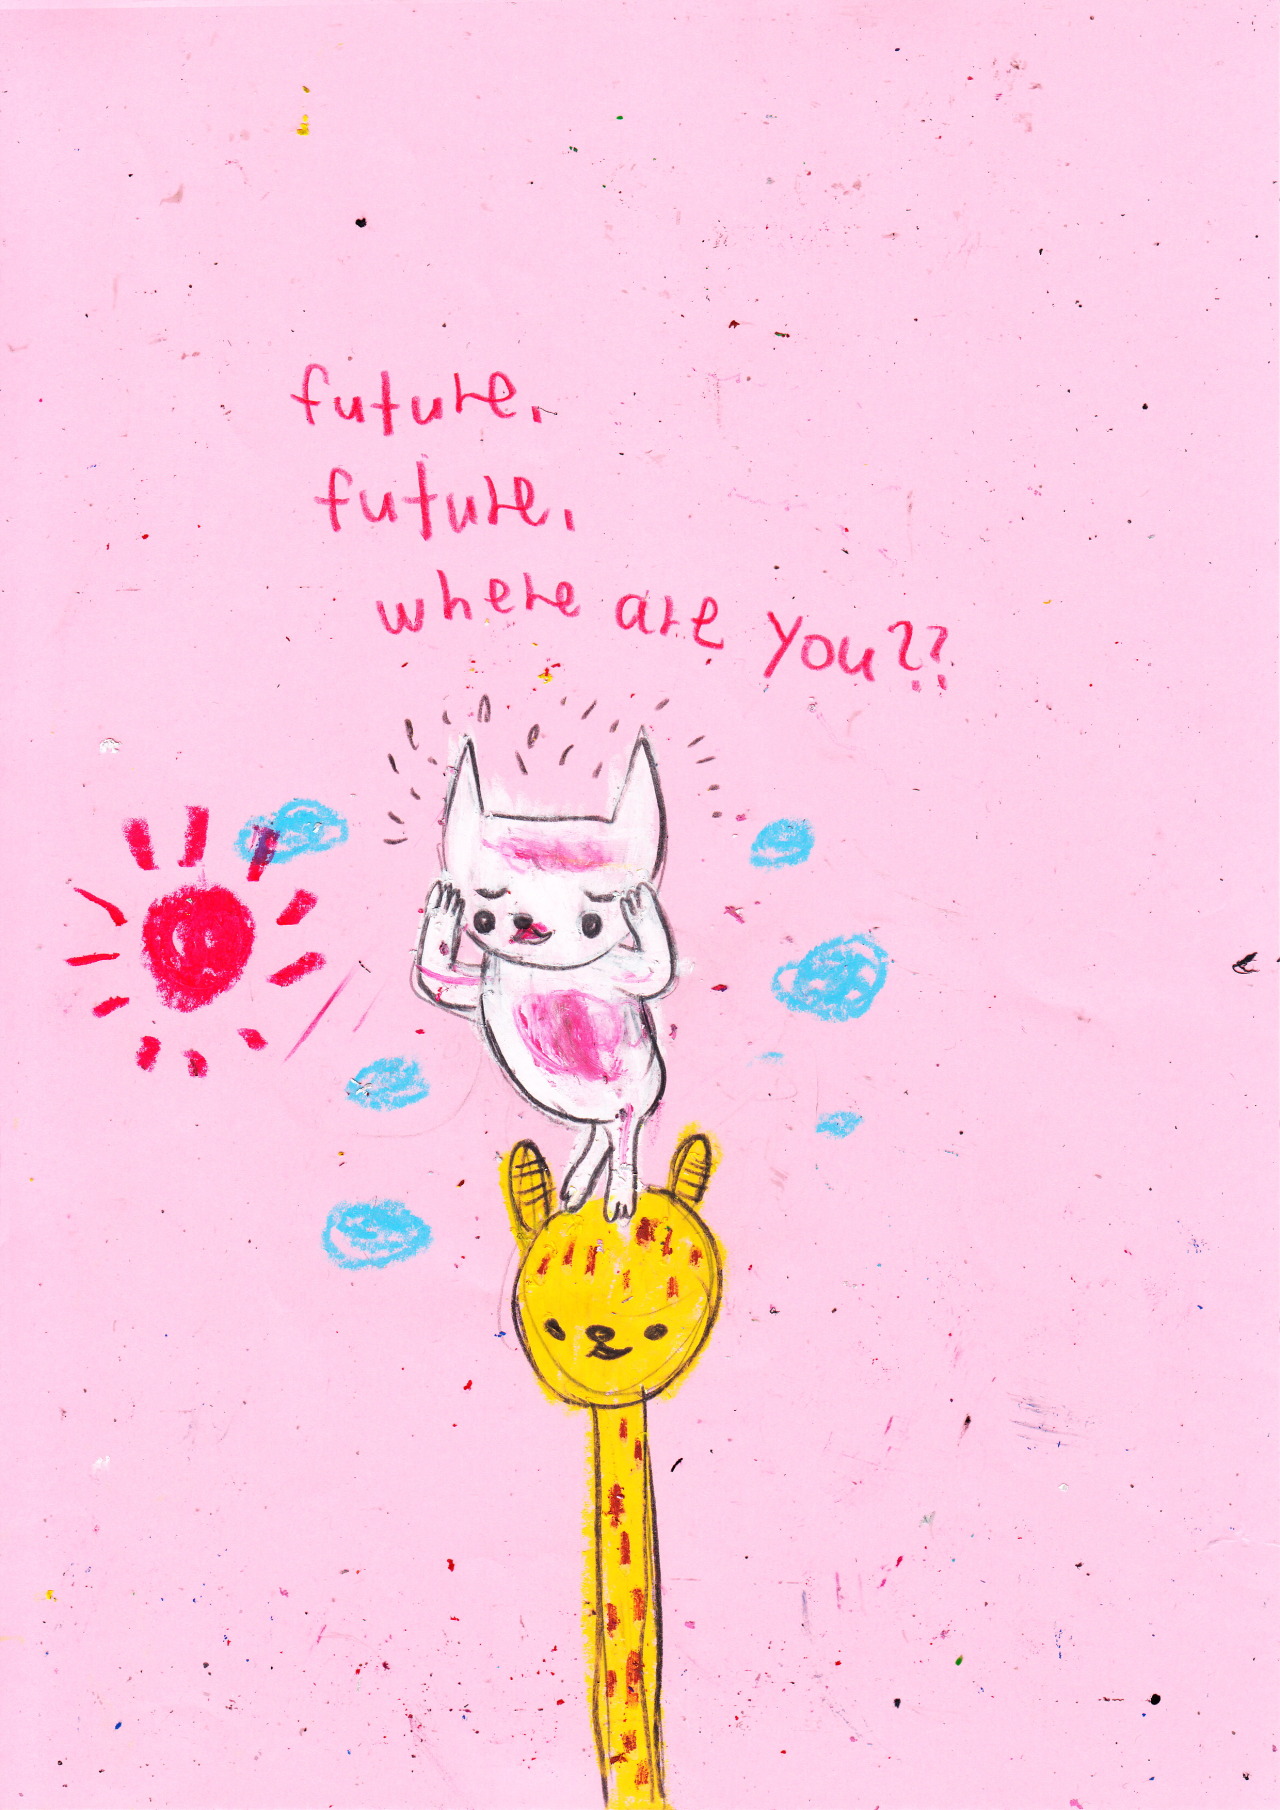 future,
future,
where are you??